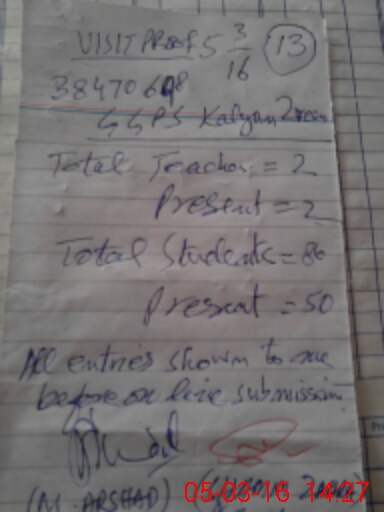 VISIT PROOF 5 3/16 13
384706
GGPS Kalyam
Total Teacher = 2
Present = 2
Total Students = 80
Present = 50
All entries shown to me
before on line submission
(M. ARSHAD)
05-03-16 14:27